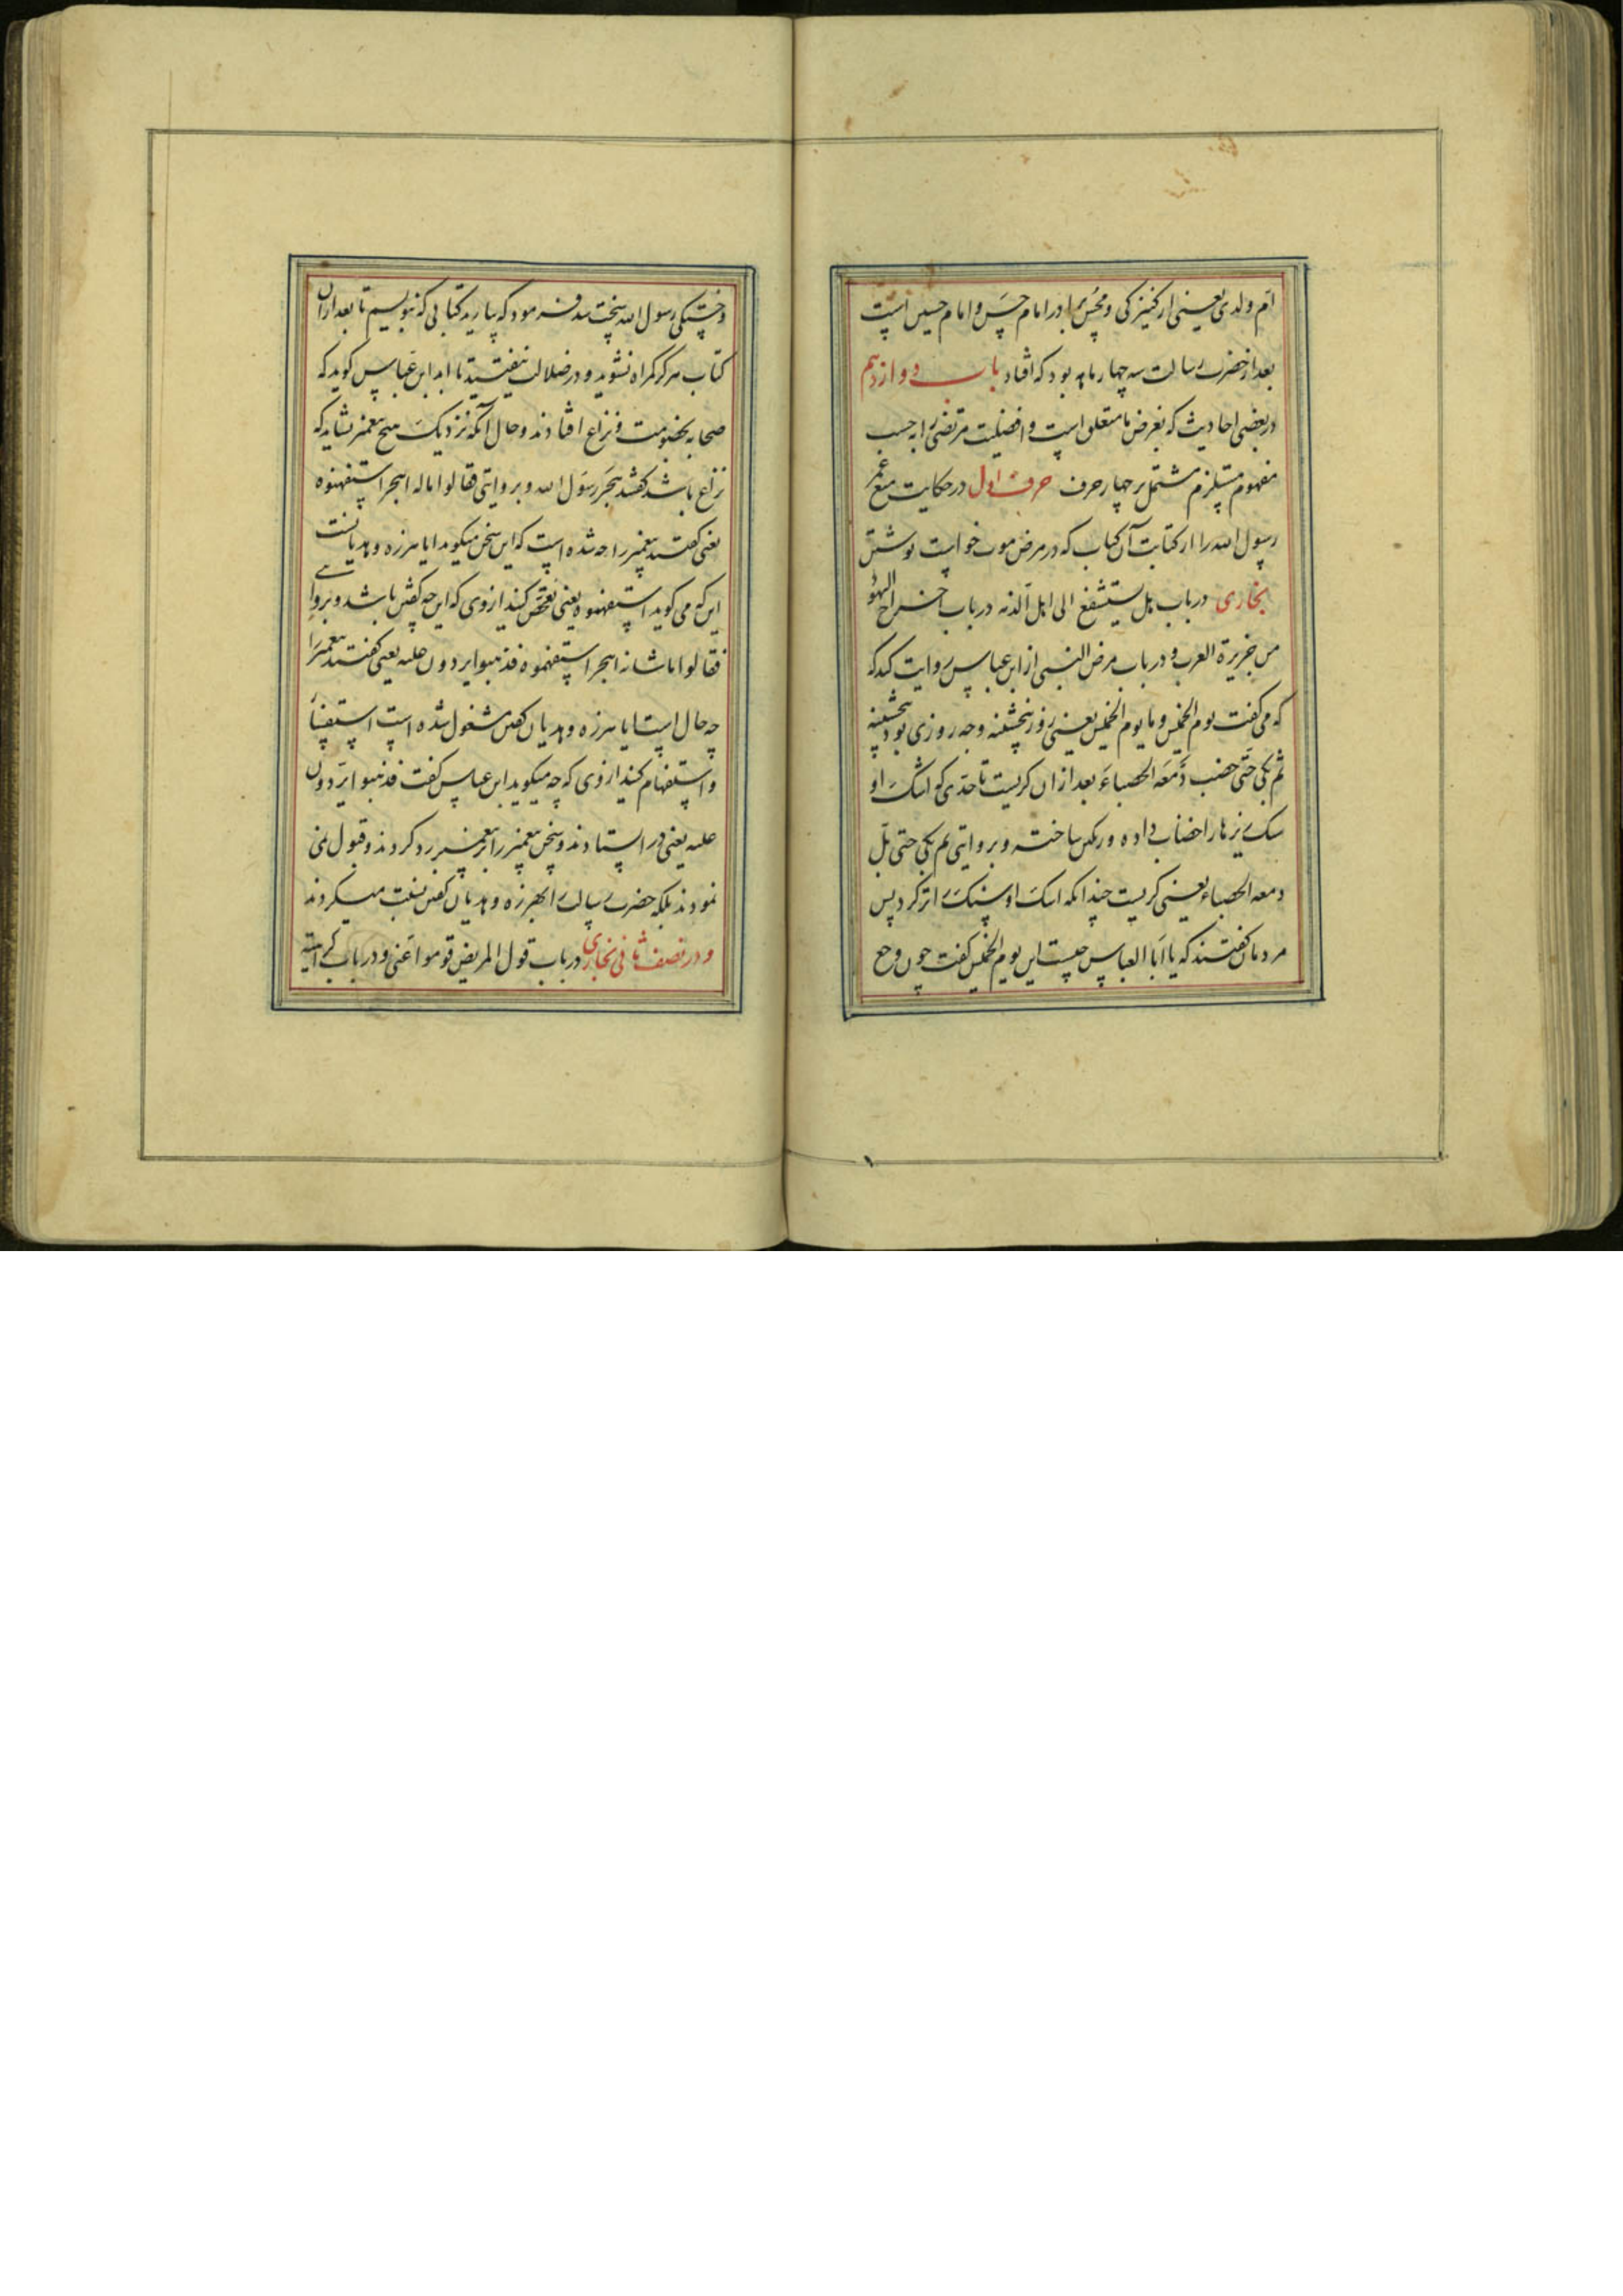 ام ولدی یعنی از کنیزکی و محسن برادر امام حسن و امام حسین است
بعد از حضرت رسالت سه چهار ماهه بود که افتاد باب دوازدهم
در بعضی احادیث که بغرض ما متعلق است و افضلیت مرتضی را به حسب
مفهوم مستلزم مشتمل بر چهار حرف حرف اول در حکایت منع عمر
رسول الله را از کتابت آن کتاب که در مرض موت خواست نوشتن
بخاری در باب هل یستشفع الی اهل الذمه در باب اخراج الیهود
من جزیرة العرب و در باب مرض النبی از ابن عباس روایت کند که
که می کفت یوم الخمیس و ما یوم الخمیس یعنی روز پنجشنبه و چه روزی بود پنجشنبه
ثم بکی حتی خضب دمعه الحصباء بعد از ان کریست تا حدی که اشک او
سنک ریزها را خضاب داده و رنکین ساخته و بروایتی ثم بکی حتی بل
دمعه الحصباء یعنی کریست چندانکه اشک او سنک را تر کرد پس
مردمان کفتند که یا ابا العباس چیست این یوم الخمیس کفت چون وجع
و خستکی رسول الله سخت شد فرمود که بیارید کتابی که بنویسم تا بعد از ان
کتاب هرکز کمراه نشوید و در ضلالت نیفتید تا ابد ابن عباس کوید که
صحابه بخصومت و نزاع افتادند و حال آنکه نزدیک هیچ پیغمبر نشاید که
نزاع باشد کفتند هجر رسول الله و بروایتی فقالوا ماله اهجر استفهموه
یعنی کفتند پیغمبر را چه شده است که این سخن میکوید ایا هرزه و هذیانست
این که می کوید استفهموه یعنی تفحص کنید از وی که این چه کفتن باشد و بروایتی
فقالوا ما شانه اهجر استفهموه فذهبوا یردون علیه یعنی کفتند پیغمبر را
چه حال است ایا هرزه و هذیان کفتن مشغول شده است استفسار
و استفهام کنید از وی که چه میکوید ابن عباس کفت فذهبوا یردون
علیه یعنی در استادند و سخن پیغمبر را بر پیغمبر رد کردند و قبول نمی
نمودند بلکه حضرت رسالت را بهرزه و هذیان کفتن نسبت میکردند
و در نصف ثانی بخاری در باب قول المریض قوموا عنی و در باب کراهیة